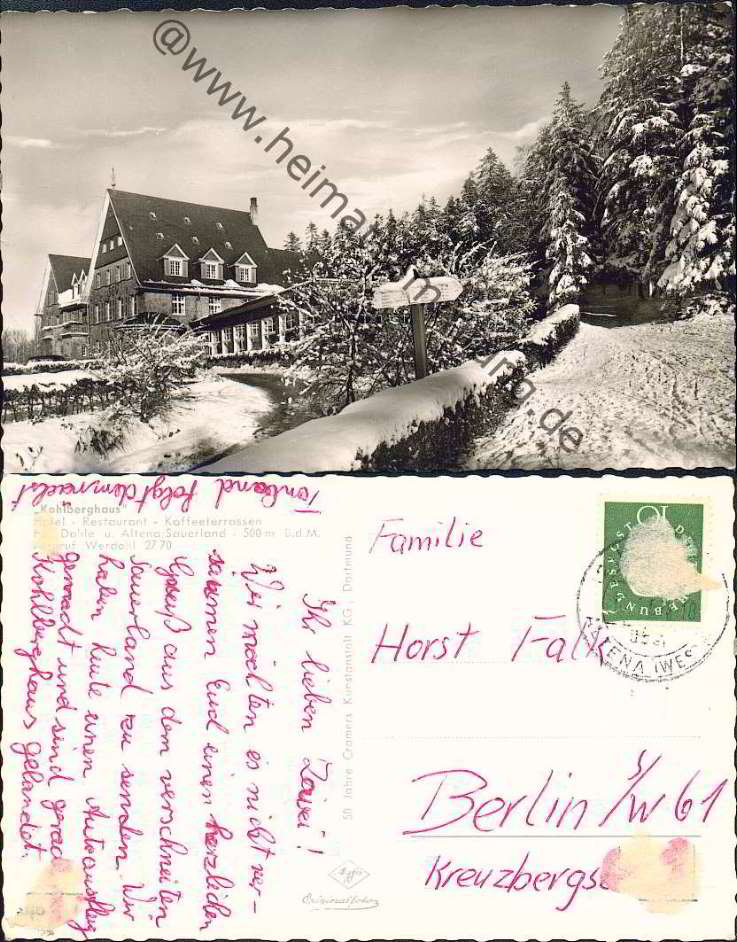 @www.heimat
burg.de
Tonband folgt demnächst
"Kohlberghaus"
Hotel - Restaurant - Kaffeeterrassen
Dahle u. Altena/Sauerland - 500 m ü.d.M.
Werdohl 27 70
Ihr lieben Zwei!
Wir möchten es nicht ver-
säumen Euch einen herzlichen
Gruß aus dem verschneiten
Sauerland zu senden. Wir
haben heute einen Autoausflug
gemacht und sind gerade
Kohlberghaus gelandet.
50 Jahre Cramers Kunstanstalt KG., Dortmund
Agfa
Originalfoto
Familie
Horst Falk
Berlin S/W 61
Kreuzbergs
10
DEUTSCHE BUNDESPOST
ALTENA (WEST